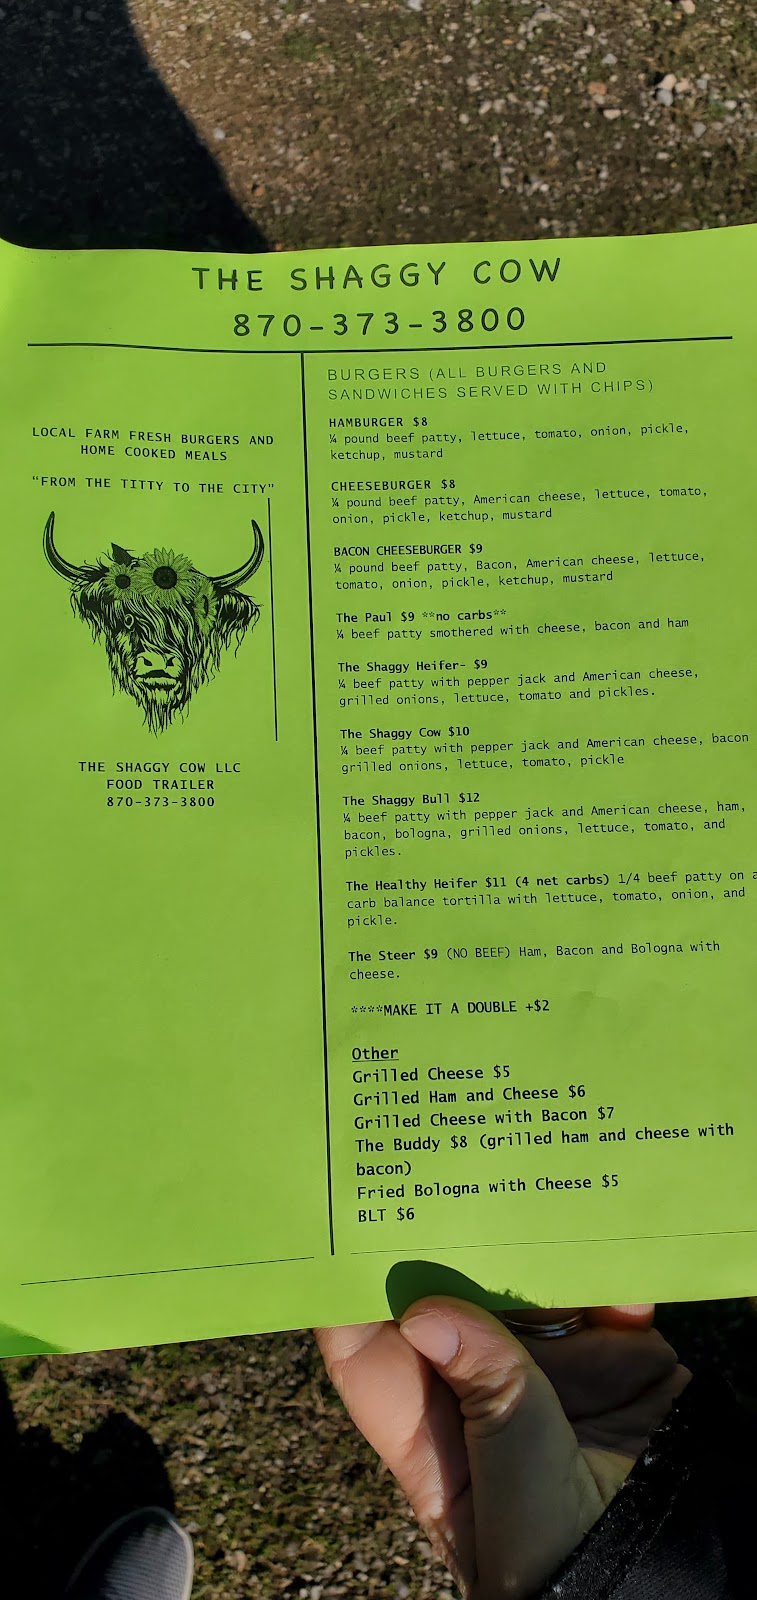 THE SHAGGY COW
870-373-3800
LOCAL FARM FRESH BURGERS AND
HOME COOKED MEALS
"FROM THE TITTY TO THE CITY"
THE SHAGGY COW LLC
FOOD TRAILER
870-373-3800
BURGERS (ALL BURGERS AND
SANDWICHES SERVED WITH CHIPS)
HAMBURGER $8
¼ pound beef patty, lettuce, tomato, onion, pickle,
ketchup, mustard
CHEESEBURGER $8
¼ pound beef patty, American cheese, lettuce, tomato,
onion, pickle, ketchup, mustard
BACON CHEESEBURGER $9
¼ pound beef patty, Bacon, American cheese, lettuce,
tomato, onion, pickle, ketchup, mustard
The Paul $9 **no carbs**
¼ beef patty smothered with cheese, bacon and ham
The Shaggy Heifer- $9
¼ beef patty with pepper jack and American cheese,
grilled onions, lettuce, tomato and pickles.
The Shaggy Cow $10
¼ beef patty with pepper jack and American cheese, bacon
grilled onions, lettuce, tomato, pickle
The Shaggy Bull $12
¼ beef patty with pepper jack and American cheese, ham,
bacon, bologna, grilled onions, lettuce, tomato, and
pickles.
The Healthy Heifer $11 (4 net carbs) 1/4 beef patty on a
carb balance tortilla with lettuce, tomato, onion, and
pickle.
The Steer $9 (NO BEEF) Ham, Bacon and Bologna with
cheese.
****MAKE IT A DOUBLE +$2
Other
Grilled Cheese $5
Grilled Ham and Cheese $6
Grilled Cheese with Bacon $7
The Buddy $8 (grilled ham and cheese with
bacon)
Fried Bologna with Cheese $5
BLT $6